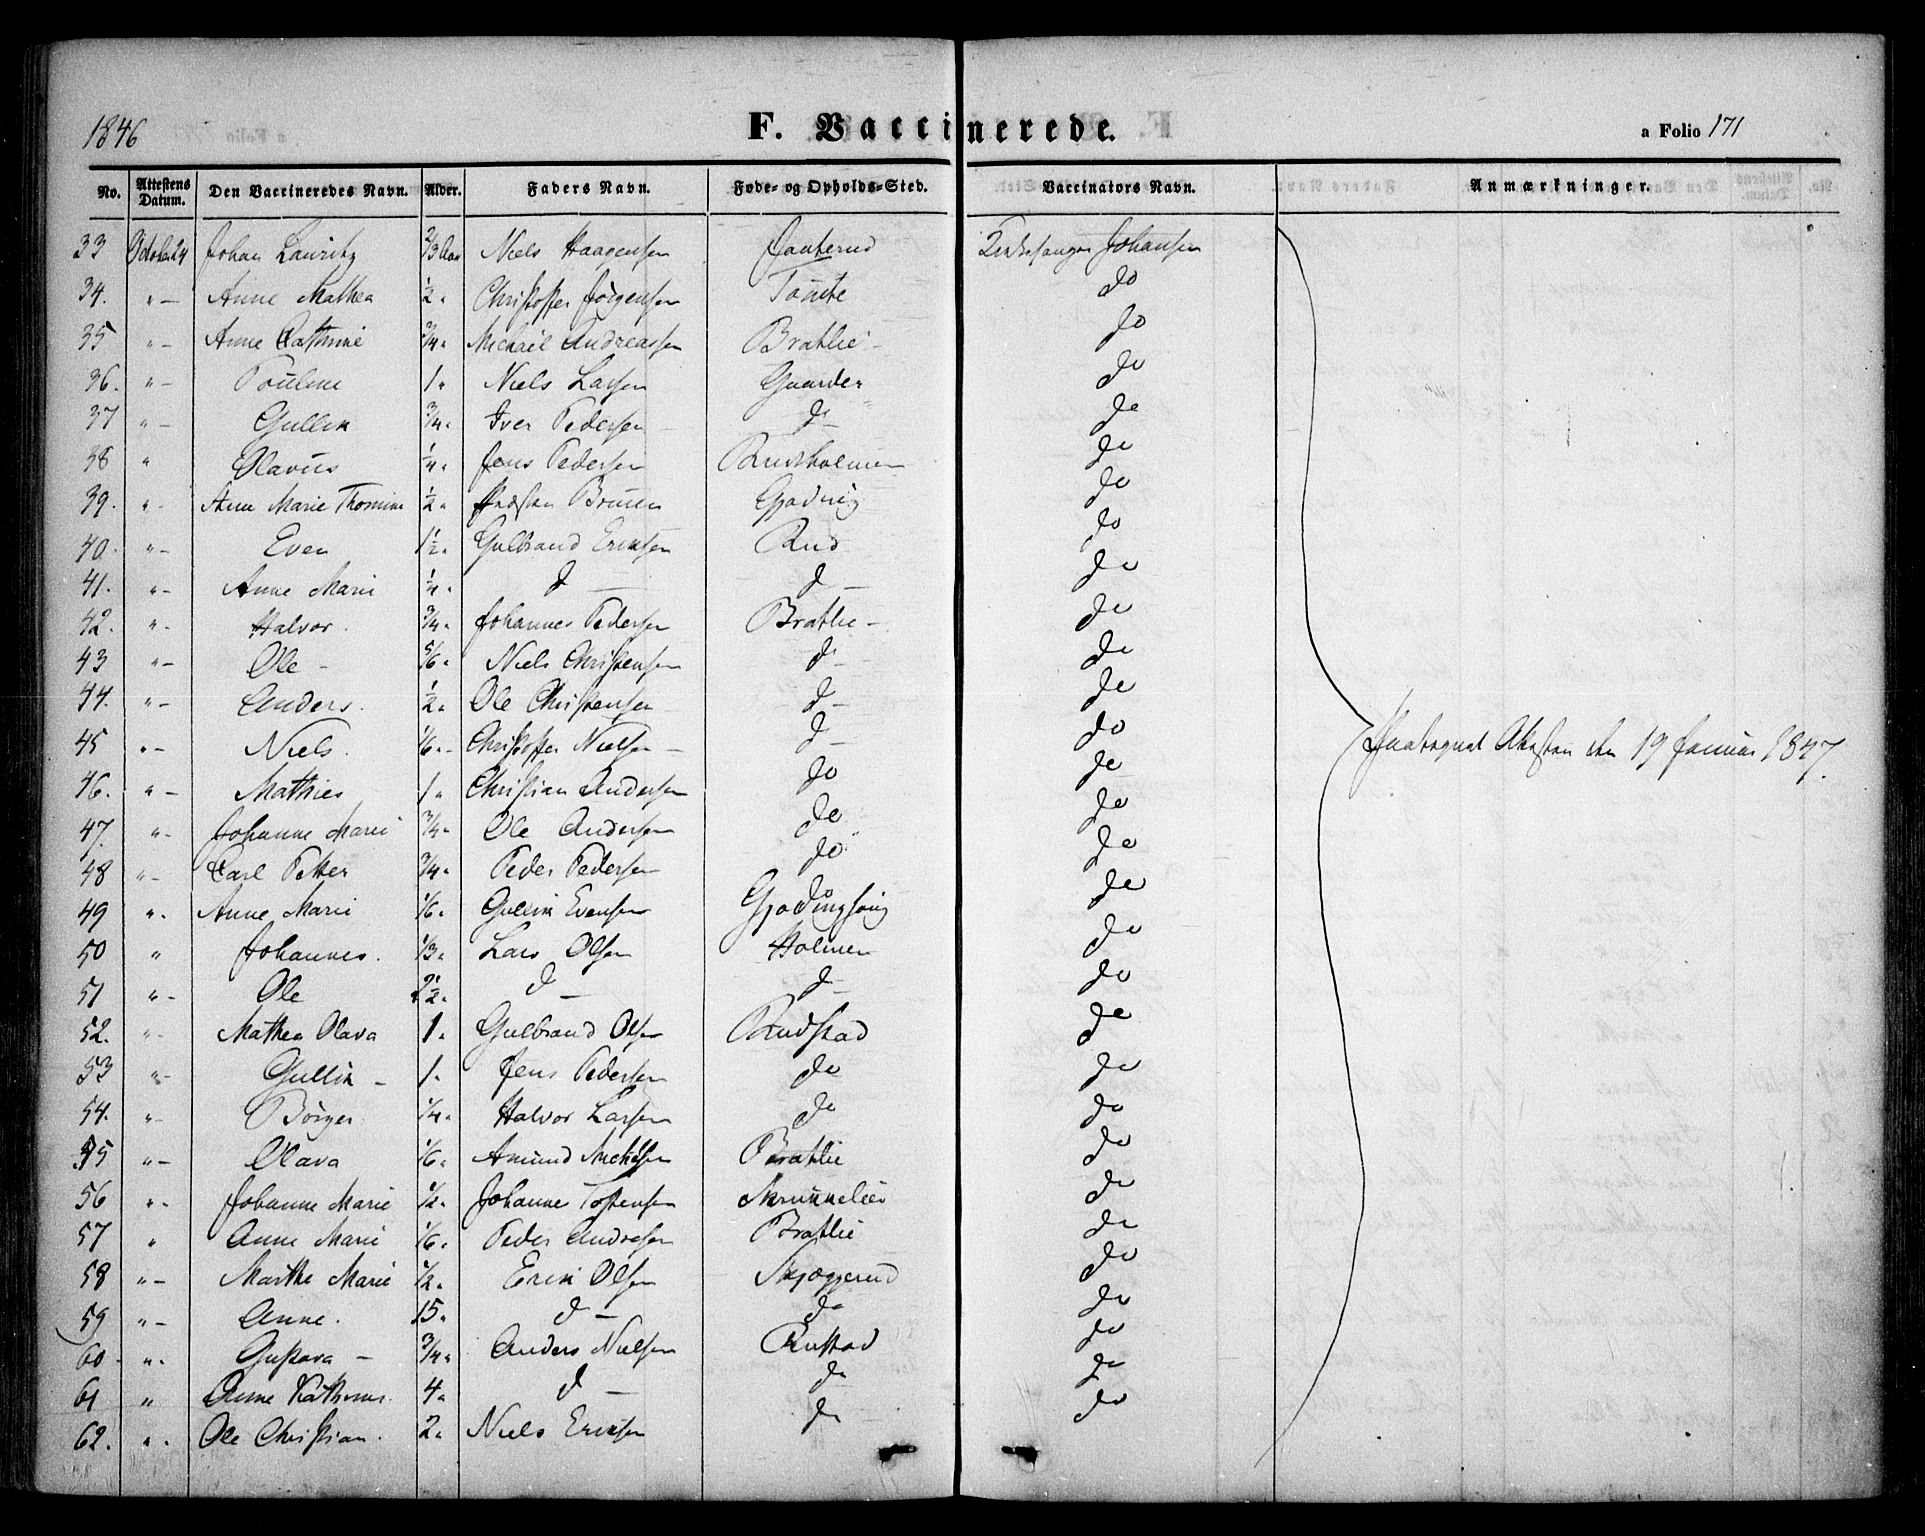 1846 F. Vaccinerede. a Folio 171
No. Attestens Datum. Den Vaccineredes Navn. Alder. Faders Navn. Føde- og Opholds-Sted. Vaccinators Navn. Anmærkninger.
33 October 24 Johan Lauritz 2/3 Aar Niels Haagensen Jonterud Kirkesanger Johansen
34. " – Anne Mathea 1/2 " Christoffer Jörgensen Tömte do
35 " – Anne Cathrine 3/4 " Michael Andreassen Bratlie – do
36. " – Pouline 1 " Niels Larsen Gaarder do
37 " – Gullik 3/4 " Iver Pedersen – d – do
38 " Olavus 1/4 " Jens Pedersen Rustholmen do
39. " – Anne Marie Thomine 1/2 " Bruun do
40. " – Even 1 1/2 " Gulbrand Eriksen Rud do
41. " – Anne Marie 1/4 " d – d – do
42. " – Halvor. 3/4 " Johannes Pedersen Bratlie – do
43 " – Ole – 5/6 " Niels Christensen d – do
44. " – Anders. 1/2 " Ole Christensen d – do
45 " – Niels. 1/6 " – Christoffer Nielsen – d – do 19 Januar 1847.
46. " – Mathies 1 " Christian Andersen do do
47. " – Johanne Marie 3/4 " Ole Andersen do do
48 " – Carl Petter 3/4 " Peder Pedersen do do
49 " – Anne Marie 1/6 " Gullik Evensen do
50 " Johannes. 1/3 " Lars Olsen Holmen do
51 " – Ole 2 1/2 " d – d – do
52. " – Mathea Olava 1 " Gulbrand Olsen Rudstad do
53 " – Gullik – 1 " Jens Pedersen do do
54. " – Börger 1/4 " Halvor Larsen do do
55 " – Olava 1/6 " Amund Michelsen Bratlie do
56 " – Johanne Marie 1/2 " Johanne Tostensen do
57 " Anne Marie 1/6 " Peder Andresen Bratlie do
58 " – Marthe Marie 1/2 " Erik Olsen Skjæggerud do
59 " – Anne. 15 " d – do do
60 " – Gustava – 3/4 " Anders Nielsen Rustad do
61 " Anne Kathrine 4 " d – do do
62. " – Ole Christian. 2 " Niels Eriksen do do